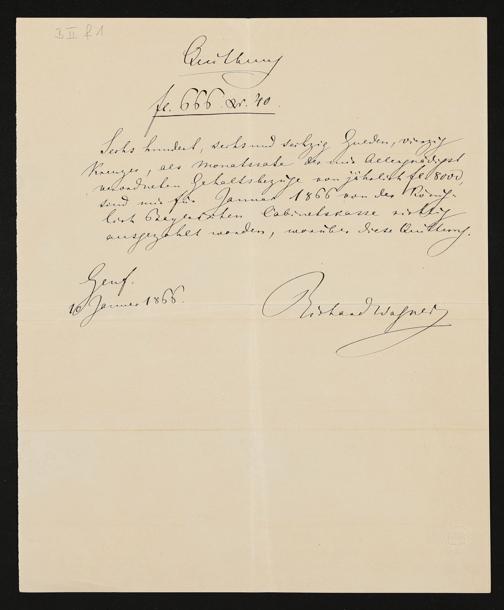 B II f 1
Quittung
fl. 666. Xr. 40.
Sechs hundert, sechs und sechzig Gulden, vierzig
Kreuzer, als Monatsrate der mir Allergnädigst
verordneten Gehaltsbezüge von jährlich fl. 8000,
sind mir für Januar 1866 von der König-
lich Bayerischen Cabinetskasse richtig
ausgezahlt worden, worüber diese Quittung.
Genf.
Januar 1866.
Richard Wagner